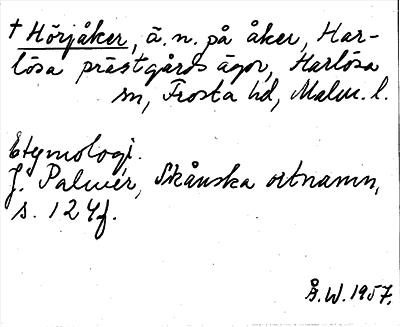 † Hörjåker, ä. n. på åker, Har-
lösa prästgårds ägor, Harlösa
sn, Frosta hd, Malm. l.
Etymologi.
J. Palmér, Skånska ortnamn,
s. 124f.
Å.W. 1957.